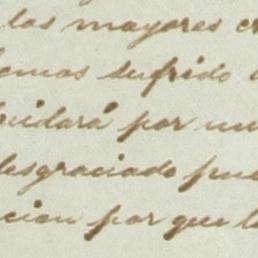 las mayores
emos sufrido
cuidará por
desgraciado
cion por que